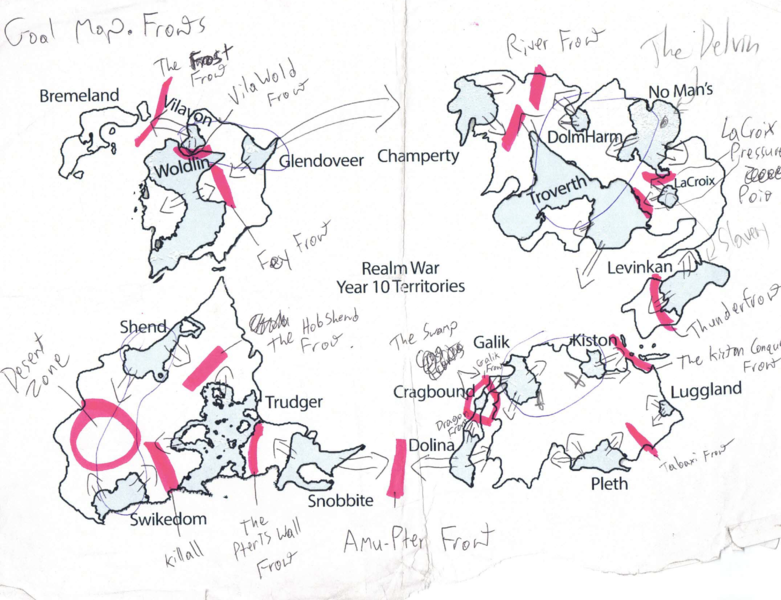 Goal Map. Fronts
River Front
The Delvin
The Frost
Front
Bremeland
Vilavon
VilaWold
Front
No Man's
DolmHarm
LaCroix
Pressure
Poio
Woldlin
Glendoveer
Champerty
Troverth
LaCroix
Slavery
Fey Front
Realm War
Year 10 Territories
Levinkan
Thunderfront
Shend
The HobShend
Front.
The Swamp
Galik
Kiston
Galik
Front
The Kizton Conque
Front
Desert
Zone
Cragbound
Luggland
Trudger
Dragon
Front
Dolina
Tabaxi Front
Snobbite
Pleth
Swikedom
Killall
The
PterTs Wall
Front
Amu-Pter Front